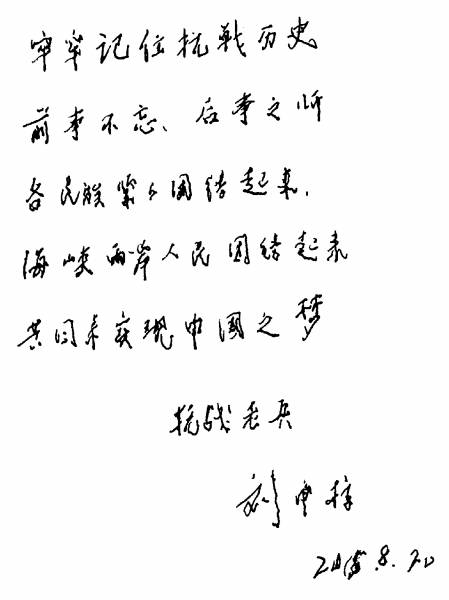 牢牢记住抗战历史
前事不忘、后事之师
各民族紧紧团结起来,
海峡两岸人民团结起来
共同来实现中国之梦
抗战老兵
8.20